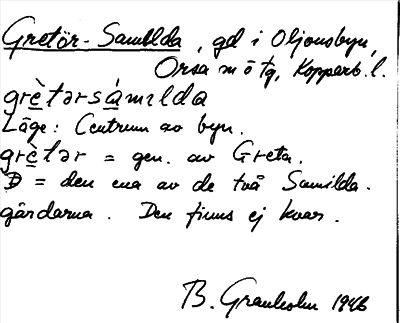 Gretör-Samilda, gd i Oljonsbyn,
Orsa sn o tg, Kopparb. l.
grètərsámılda
Läge: Centrum av byn.
grètər = gen. av Greta.
D = den ena av de två Samilda-
gårdarna. Den finns ej kvar.
B. Granholm 1946